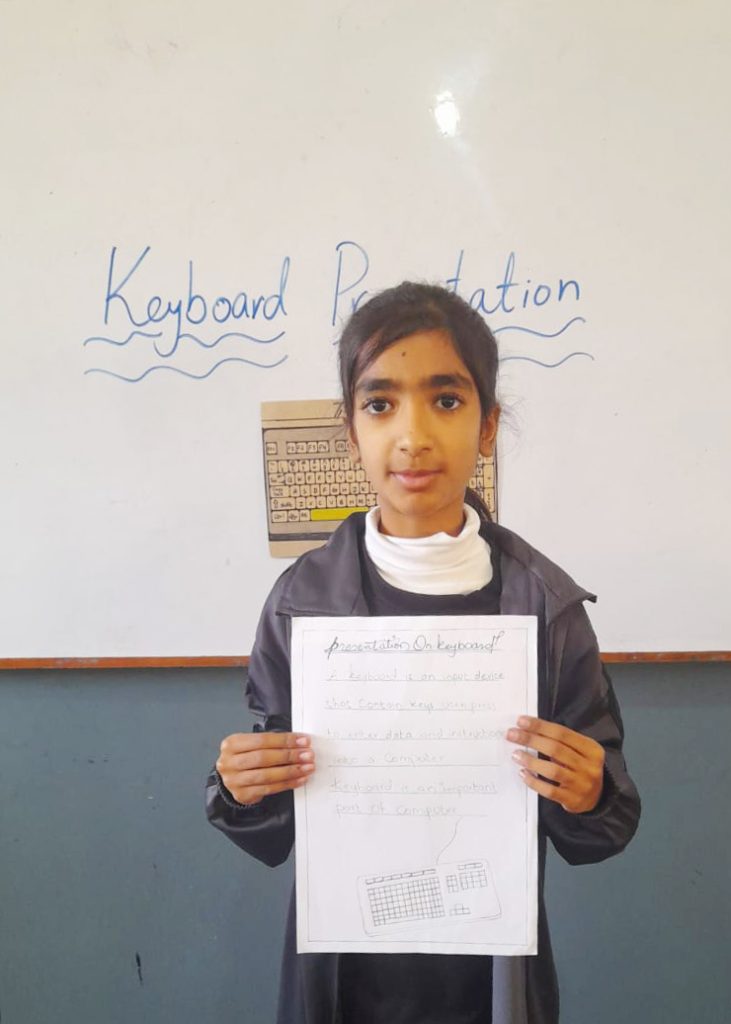 Keyboard Presentation
Presentation On Keyboard
A keyboard is an input device
that Contain keys users press
to enter data and instructions
into a Computer
Keyboard is an important
part of Computer